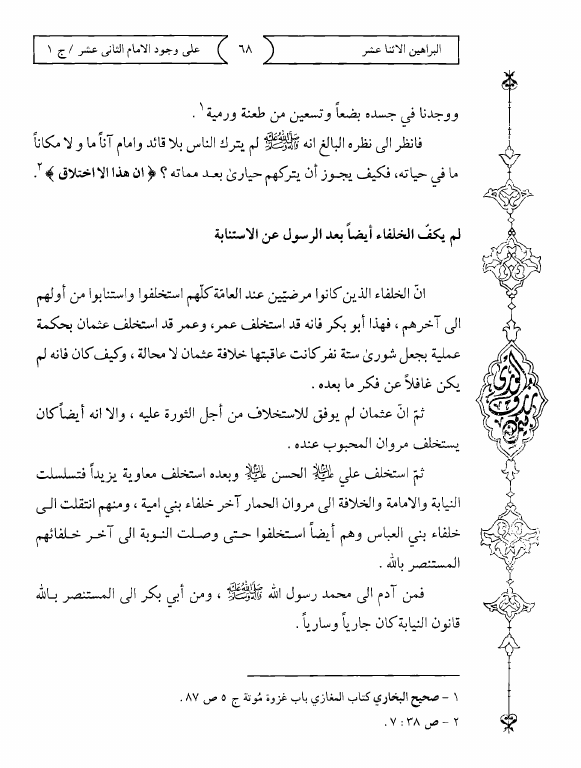 البراهين الاثنا عشر
٦٨
على وجود الامام الثانى عشر / ج ١
ووجدنا في جسده بضعاً وتسعين من طعنة ورمية١.
فانظر الى نظره البالغ انه ﷺ لم يترك الناس بلا قائد وامام آناً ما و لا مكاناً
ما في حياته، فكيف يجوز أن يتركهم حيارىٰ بعد مماته ؟ ﴿ ان هذا الا اختلاق ﴾٢.
لم يكفّ الخلفاء أيضاً بعد الرسول عن الاستنابة
انّ الخلفاء الذين كانوا مرضيّين عند العامّة كلّهم استخلفوا واستنابوا من أولهم
الى آخرهم ، فهذا أبو بكر فانه قد استخلف عمر، وعمر قد استخلف عثمان بحكمة
عملية بجعل شورىٰ ستة نفر كانت عاقبتها خلافة عثمان لا محالة ، وكيف كان فانه لم
يكن غافلاً عن فكر ما بعده .
ثمّ انّ عثمان لم يوفق للاستخلاف من أجل الثورة عليه ، والا انه أيضاً كان
يستخلف مروان المحبوب عنده .
ثمّ استخلف علي عليه السلام الحسن عليه السلام وبعده استخلف معاوية يزيداً فتسلسلت
النيابة والامامة والخلافة الى مروان الحمار آخر خلفاء بني امية ، ومنهم انتقلت الى
خلفاء بني العباس وهم أيضاً استخلفوا حتى وصلت النوبة الى آخر خلفائهم
المستنصر بالله .
فمن آدم الى محمد رسول الله ﷺ ، ومن أبي بكر الى المستنصر بالله
قانون النيابة كان جارياً وسارياً .
١ - صحيح البخاري كتاب المغازي باب غزوة مُوتة ج ٥ ص ٨٧ .
٢ - ص ٣٨ : ٧ .